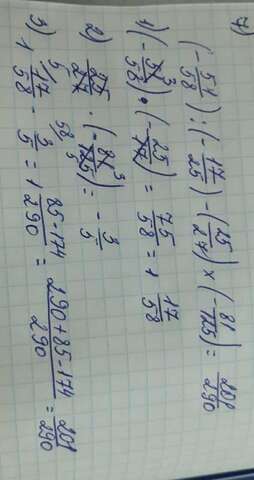 7)
(-51/58) : (-17/25) - (25/27) × (-81/125) = 201/290
1) (-51³/58) · (-25/17) = 75/58 = 1 17/58
2) 25/27 · (-81³/125₅) = -3/5
3) 1 17⁵/58 - 3⁵⁸/5 = 1 85-174/290 = 290+85-174/290 = 201/290